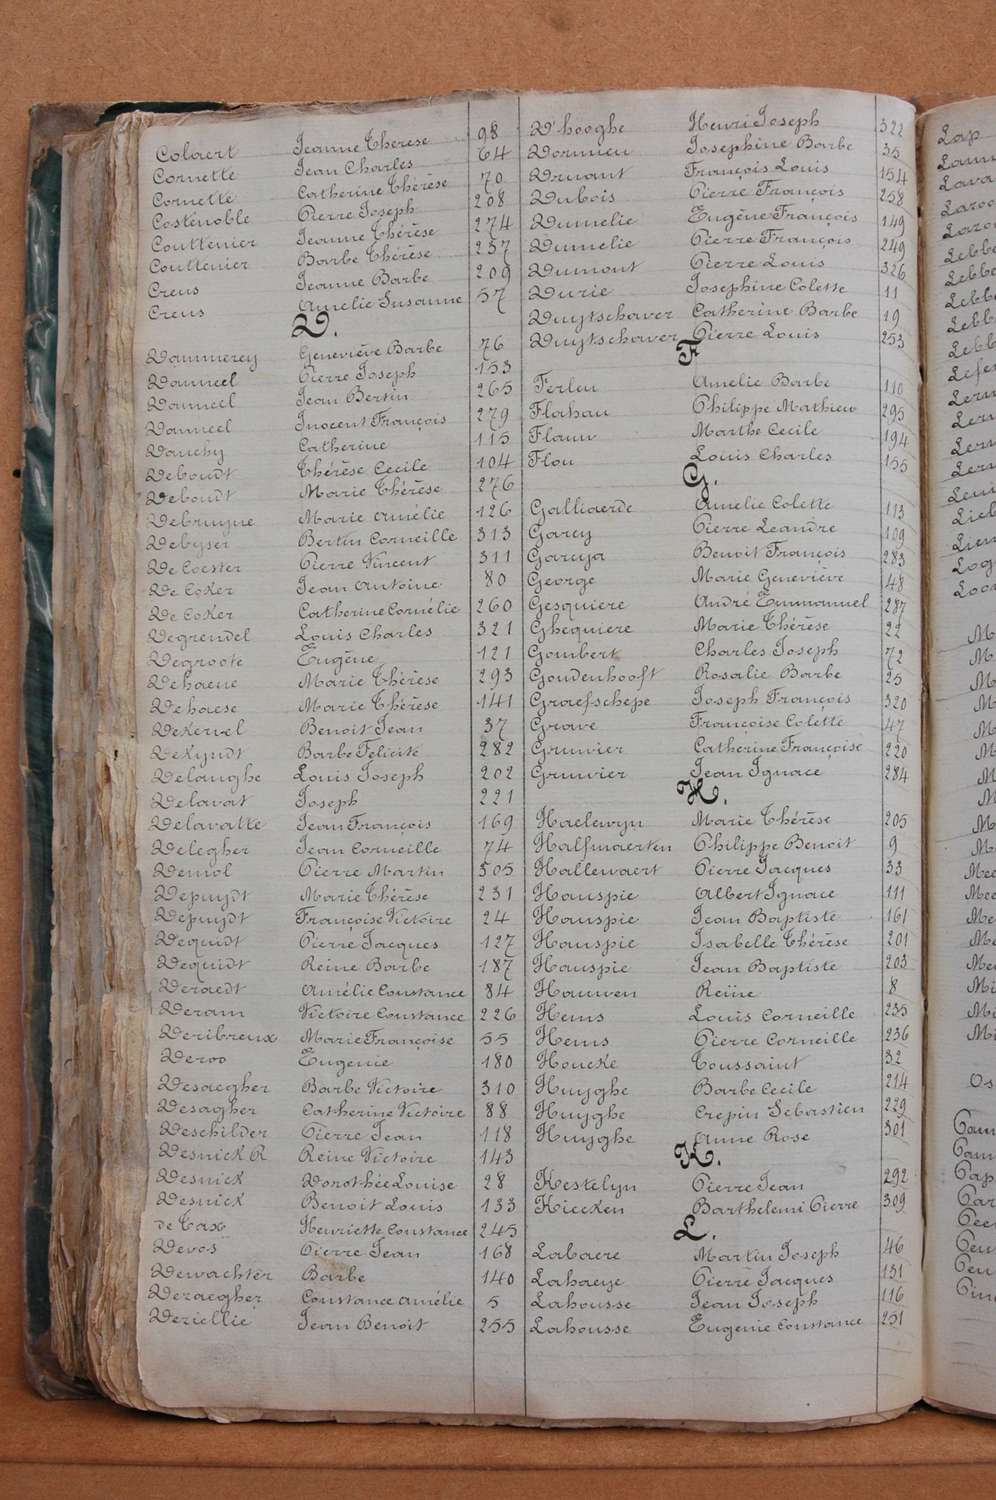 Colaert Jeanne Thérèse 98
Cornette Jean Charles 64
Cornette Catherine Thérèse 70
Costenoble Pierre Joseph 208
Couttenier Jeanne Thérèse 274
Couttenier Barbe Thérèse 257
Creus Jeanne Barbe 209
Creus Amelie Susanne 57
D.
Dammerey Geneviève Barbe 76
Danneel Pierre Joseph 153
Danneel Jean Bertin 265
Danneel Inocent François 279
Dauchy Catherine 115
Deboudt Thérèse Cecile 104
Deboudt Marie Thérèse 276
Debruyne Marie Amélie 126
Debyser Bertin Corneille 313
De Coester Pierre Vincent 311
De Coker Jean Antoine 80
De Coker Catherine Cornélie 260
Degrendel Louis Charles 321
Degroote Eugène 121
Dehaene Marie Thérèse 293
Dehaese Marie Thérèse 141
DeKervel Benoit Jean 37
DeKyndt Barbe Felicité 282
Delanghe Louis Joseph 202
Delavat Joseph 221
Delavatte Jean François 169
Delegher Jean Corneille 74
Demol Pierre Martin 305
Depuydt Marie Thérèse 231
Depuydt Françoise Victoire 24
Dequidt Pierre Jacques 127
Dequidt Reine Barbe 187
Deraedt Amélie Constance 84
Deram Victoire Constance 226
Deribreux Marie Françoise 55
Deroo Eugenie 180
Desaegher Barbe Victoire 310
Desagher Catherine Victoire 88
Deschilder Pierre Jean 118
Desnick R Reine Victoire 143
Desnick Dorothée Louise 28
Desnick Benoit Louis 133
de Tax Henriette Constance 245
Devos Pierre Jean 168
Dewachter Barbe 140
Dezaegher Constance Amélie 5
Deziellie Jean Benoit 255
D'hooghe Henri Joseph 322
Dormieu Josephine Barbe 35
Druant François Louis 154
Dubois Pierre François 258
Dumelie Eugène François 149
Dumelie Pierre François 249
Dumont Pierre Louis 326
Durie Josephine Colette 11
Duytschaver Catherine Barbe 19
Duytschaver Pierre Louis 253
F
Ferleu Amelie Barbe 110
Flahau Philippe Mathieu 295
Flauw Marthe Cecile 194
Flou Louis Charles 155
G.
Galliaerde Amelie Colette 113
Garey Pierre Leandre 109
Gareya Benoit François 283
George Marie Geneviève 48
Gesquiere André Emmanuel 287
Ghequiere Marie Thérèse 22
Gombert Charles Joseph 72
Goudenhooft Rosalie Barbe 25
Graefschepe Joseph François 320
Grave Françoise Colette 47
Gruwier Catherine Françoise 220
Gruwier Jean Ignace 284
H.
Haelewyn Marie Thérèse 205
Halfmaerten Philippe Benoit 9
Hallewaert Pierre Jacques 33
Hauspie Albert Ignace 111
Hauspie Jean Baptiste 161
Hauspie Isabelle Thérèse 201
Hauspie Jean Baptiste 203
Hauwen Reine 8
Hems Louis Corneille 235
Hems Pierre Corneille 236
Houcke Toussaint 32
Huyghe Barbe Cecile 214
Huyghe Crepin Sebastien 229
Huyghe Anne Rose 301
K.
Kestelyn Pierre Jean 292
Kiecken Barthelemi Pierre 309
L.
Labaere Martin Joseph 46
Lahaeye Pierre Jacques 131
Lahousse Jean Joseph 116
Lahousse Eugenie Constance 251